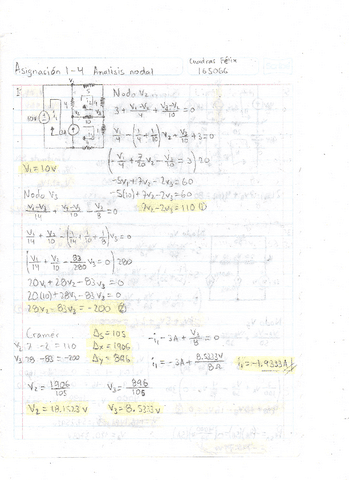 Cuadras Félix
Asignasión 1-4 Analisis nodal 165066
1
V₁
10V
Nodo V₂
3 + (V₁-V₂)/4 + (V₃-V₂)/10 = 0
V₁/4 - (1/4 + 1/10) V₂ + V₃/10 + 3 = 0
-5V₁ + 7V₂ - 2V₃ = 60
-5(10) + 7V₂ - 2V₃ = 60
7V₂ - 2V₃ = 110 ①
V₁ = 10V
Nodo V₃
(V₁-V₃)/14 + (V₂-V₃)/10 - V₃/8 = 0
V₁/14 + V₂/10 - (1/14 + 1/10 + 1/8) V₃ = 0
(V₁/14 + V₂/10 - 83/280 V₃ = 0) 280
20V₁ + 28V₂ - 83V₃ = 0
20(10) + 28V₂ - 83V₃ = 0
28V₂ - 83V₃ = -200 ②
Cramer
V₁ 7 -2 = 110
V₂ 28 -83 = -200
Δx = 1906
Δy = 896
-i₁ - 3A + V₃/8 = 0
i₁ = -3A + 8.5333V/8Ω
i₁ = -1.9333A
V₂ = 1906/105
V₃ = 896/105
V₂ = 18.1523V
V₃ = 8.5333V